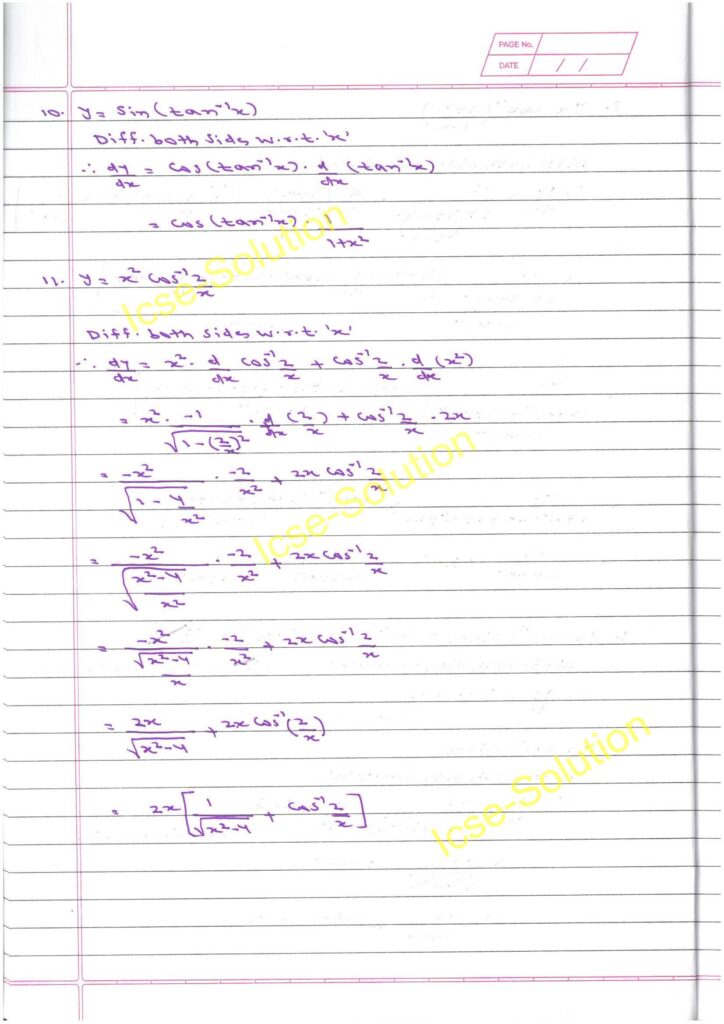 PAGE No.
DATE / /
10. y = Sin(tan⁻¹x)
Diff. both sides w.r.t. 'x'
∴ dy/dx = cos(tan⁻¹x) · d/dx (tan⁻¹x)
= cos(tan⁻¹x) · 1/1+x²
11. y = x² cos⁻¹ 2/x
Diff. both sides w.r.t. 'x'
∴ dy/dx = x² · d/dx cos⁻¹ 2/x + cos⁻¹ 2/x · d/dx (x²)
= x² · -1/√(1-(2/x)²) · d/dx (2/x) + cos⁻¹ 2/x · 2x
= -x²/√(1-4/x²) · -2/x² + 2x cos⁻¹ 2/x
= -x²/√((x²-4)/x²) · -2/x² + 2x cos⁻¹ 2/x
= -x²/(√(x²-4)/x) · -2/x² + 2x cos⁻¹ 2/x
= 2x/√(x²-4) + 2x cos⁻¹(2/x)
= 2x[1/√(x²-4) + cos⁻¹ 2/x]
Icse-Solution
Icse-Solution
Icse-Solution